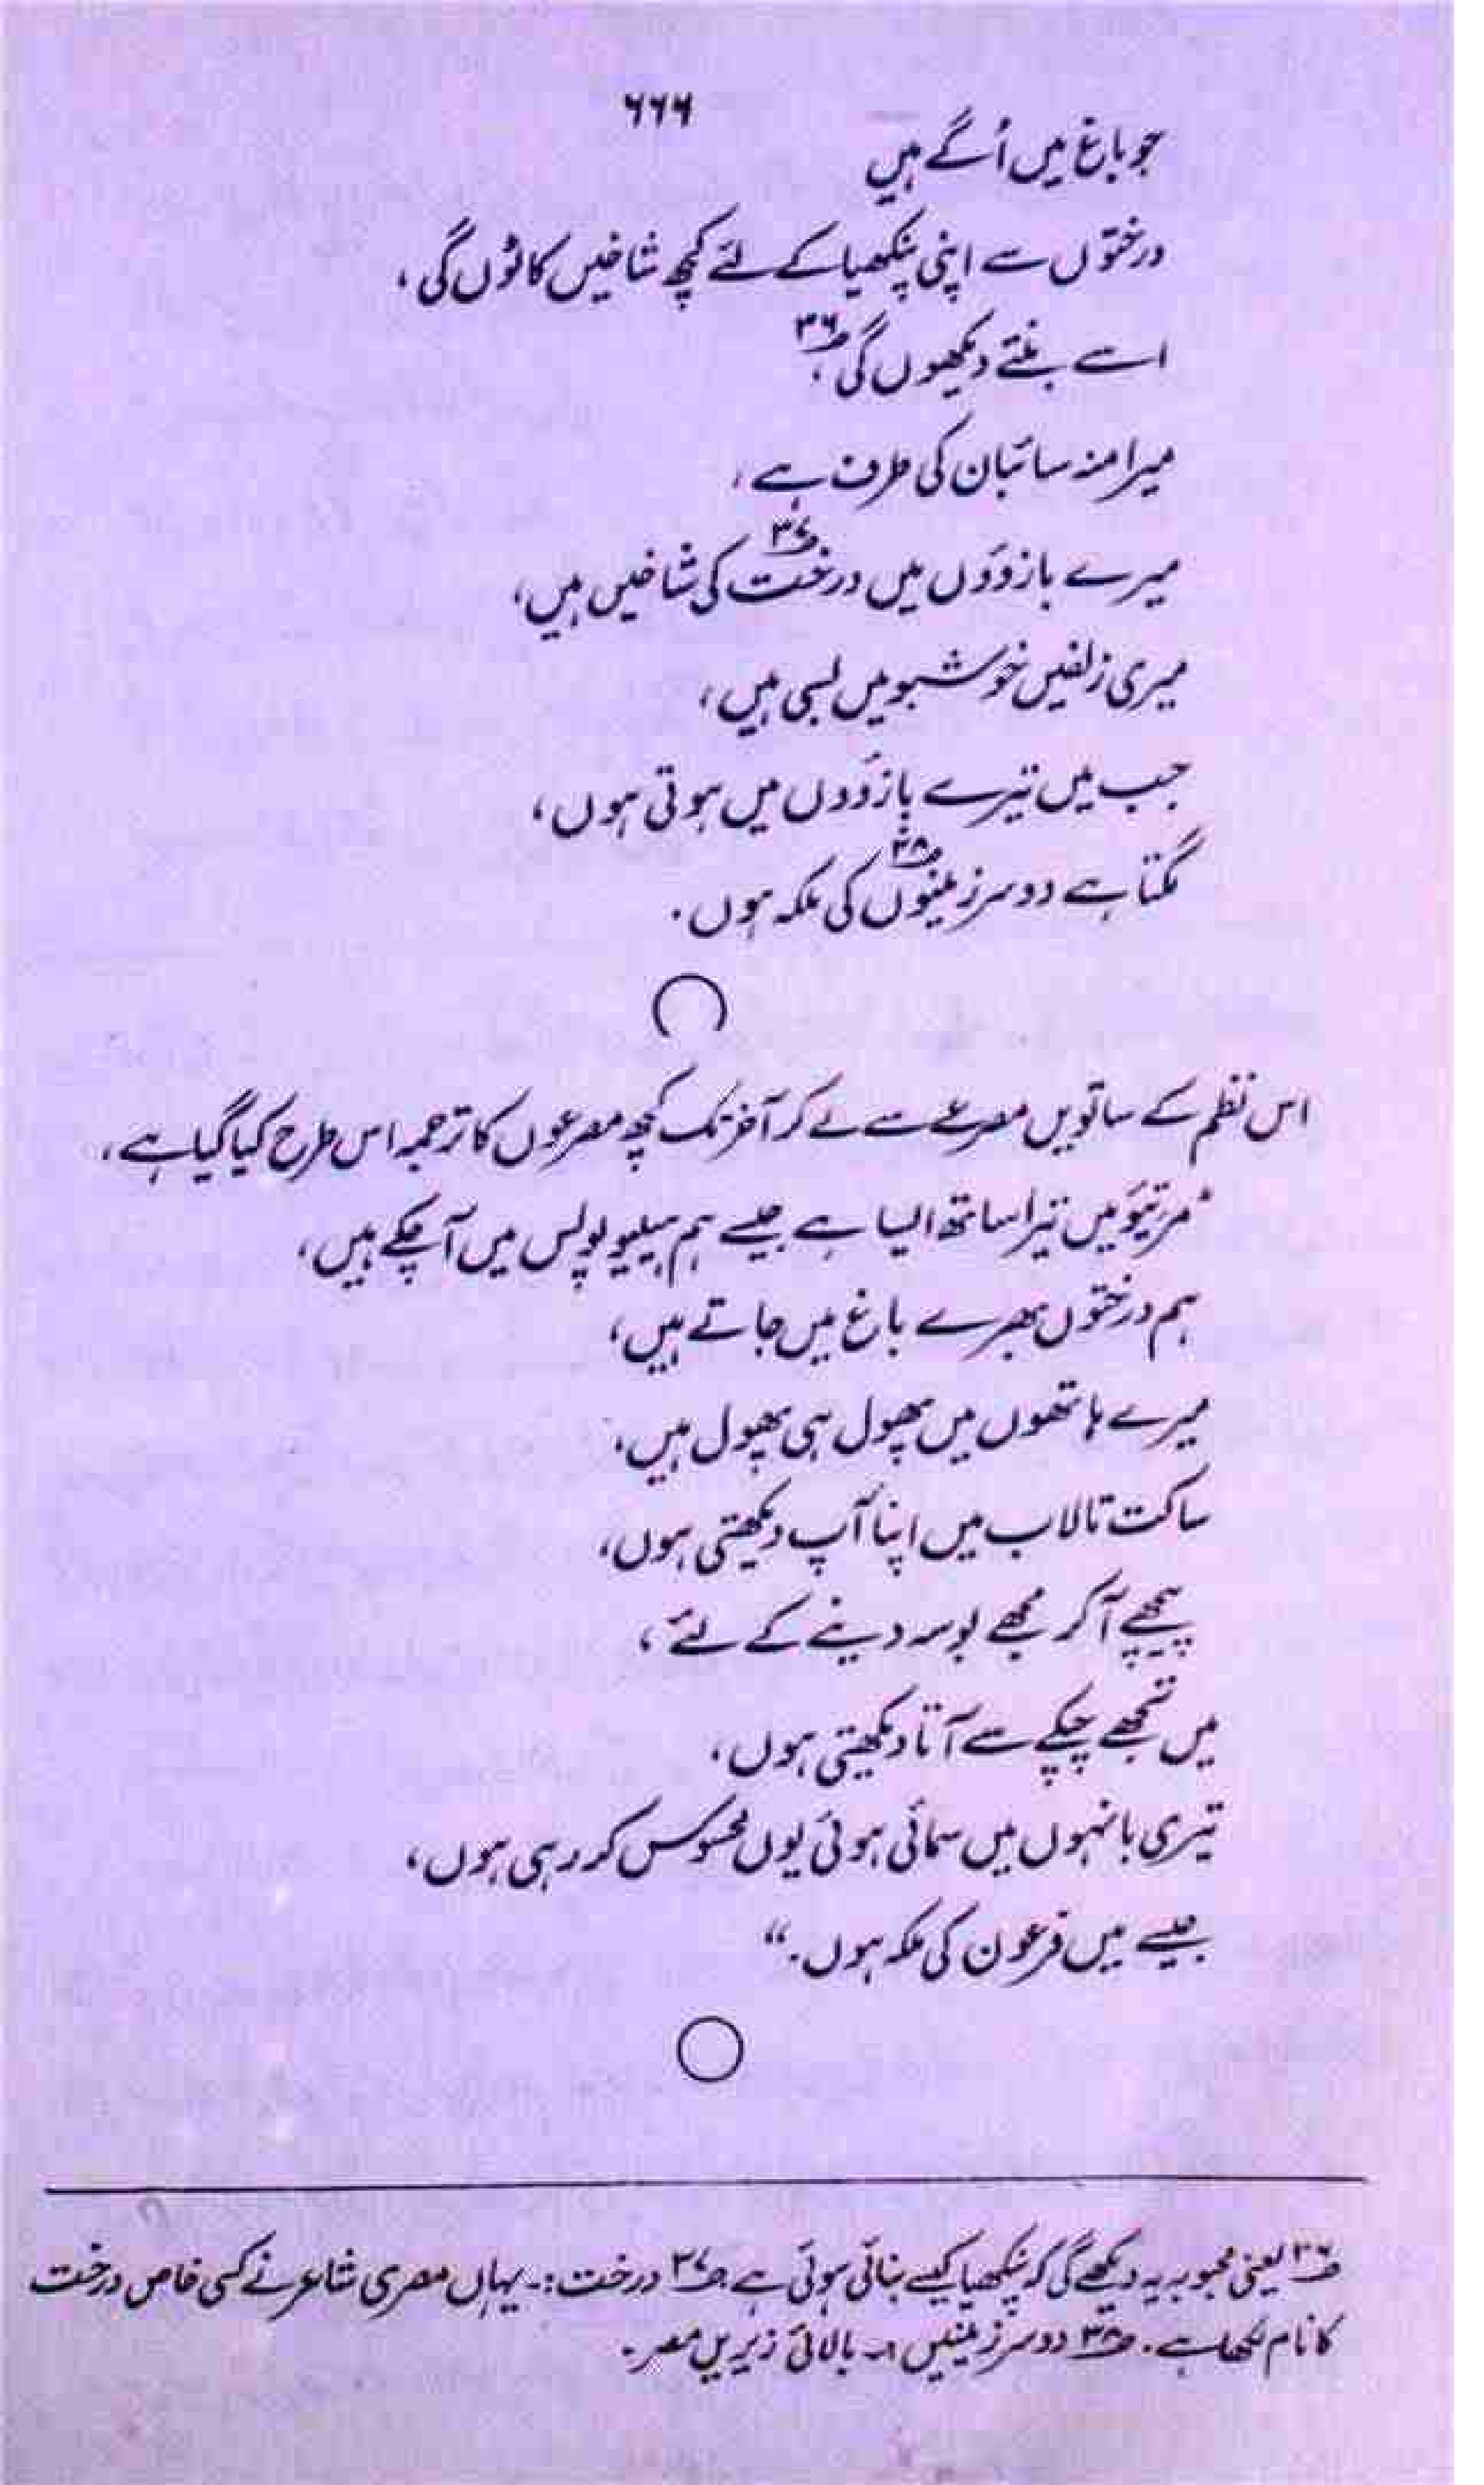 ۶۶۶
جو باغ میں اُگے ہیں
درختوں سے اپنی پنکھیا کے لئے کچھ شاخیں کاٹوں گی،
اسے بنتے دیکھوں گی ۳۶؎،
میرا منہ سائبان کی طرف ہے،
میرے بازوؤں میں درخت ۳۷؎ کی شاخیں ہیں،
میری زلفیں خوشبو میں بسی ہیں،
جب میں تیرے بازوؤں میں ہوتی ہوں،
لگتا ہے دو سرزمینوں ۳۸؎ کی ملکہ ہوں.
اس نظم کے ساتویں مصرعے سے لے کر آخر تک کچھ مصرعوں کا ترجمہ اس طرح کیا گیا ہے،
"مرتیو میں تیرا ساتھ ایسا ہے جیسے ہم ہیلیو پولس میں آ چکے ہیں،
ہم درختوں بھرے باغ میں جاتے ہیں،
میرے ہاتھوں میں پھول ہی پھول ہیں،
ساکت تالاب میں اپنا آپ دیکھتی ہوں،
پیچھے آ کر مجھے بوسہ دینے کے لئے،
میں تجھے چپکے سے آتا دیکھتی ہوں،
تیری بانہوں میں سمائی ہوئی یوں محسوس کر رہی ہوں،
جیسے میں فرعون کی ملکہ ہوں."
۳۶؎ یعنی محبوبہ یہ دیکھے گی کہ پنکھیا کیسے بنائی ہوئی ہے. ۳۷؎ درخت:۔ یہاں مصری شاعر نے کسی خاص درخت
کا نام لکھا ہے. ۳۸؎ دو سرزمینیں :۔ بالائی زیریں مصر۔